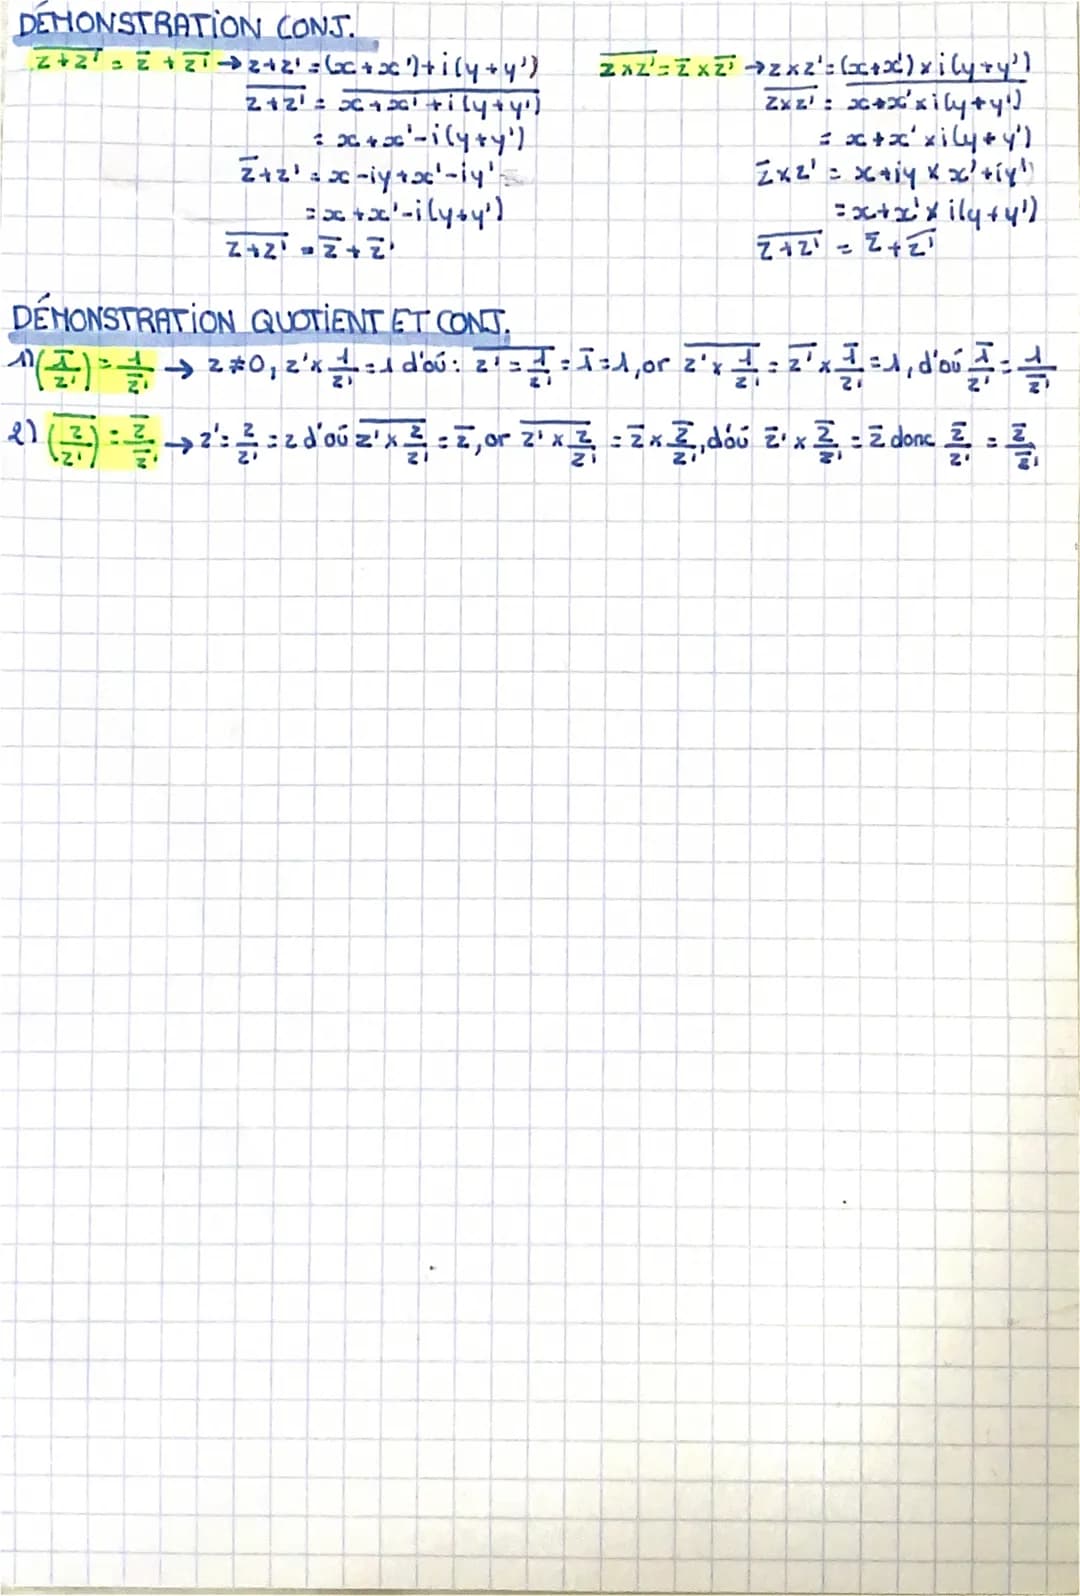 DÉMONSTRATION CONJ.
z̅+̅z̅'̅ = z̅ + z̅'̅ → z+z' = (x+x')+i(y+y')
z̅+̅z̅'̅ = x̅+̅x̅'̅ ̅+̅i̅(̅y̅+̅y̅'̅)̅
= x+x'-i(y+y')
z̅+z' = x-iy+x'-iy'
= x+x'-i(y+y')
z̅+̅z̅'̅ = z̅+z̅'
z̅×̅z̅'̅ = z̅×z̅'̅ → z×z' = (x+x')×i(y+y')
z̅×̅z̅'̅ = x̅+̅x̅'̅×̅i̅(̅y̅+̅y̅'̅)̅
= x+x'×i(y+y')
z̅×z' = x+iy × x'+iy'
= x+x'×i(y+y')
z̅+̅z̅'̅ = z̅+z̅'̅
DÉMONSTRATION QUOTIENT ET CONJ.
1) (1̅/z') = 1/z̅'̅ → z≠0, z'×1/z' = 1 d'où : z̅'̅ ̅=̅ ̅1̅/z' = 1̅ = 1, or z̅'̅ ̅×̅ ̅1̅/z' = z̅'̅×1̅/z' = 1, d'où 1̅/z' = 1/z̅'̅
2) (z̅/z') = z̅/z̅'̅ → z' = z/z' = z d'où z̅'̅×̅z̅/z' = z̅, or z̅'̅ ̅×̅ ̅z̅/z' = z̅×z̅/z', d'où z̅'×z̅/z' = z̅ donc z̅/z' = z̅/z̅'